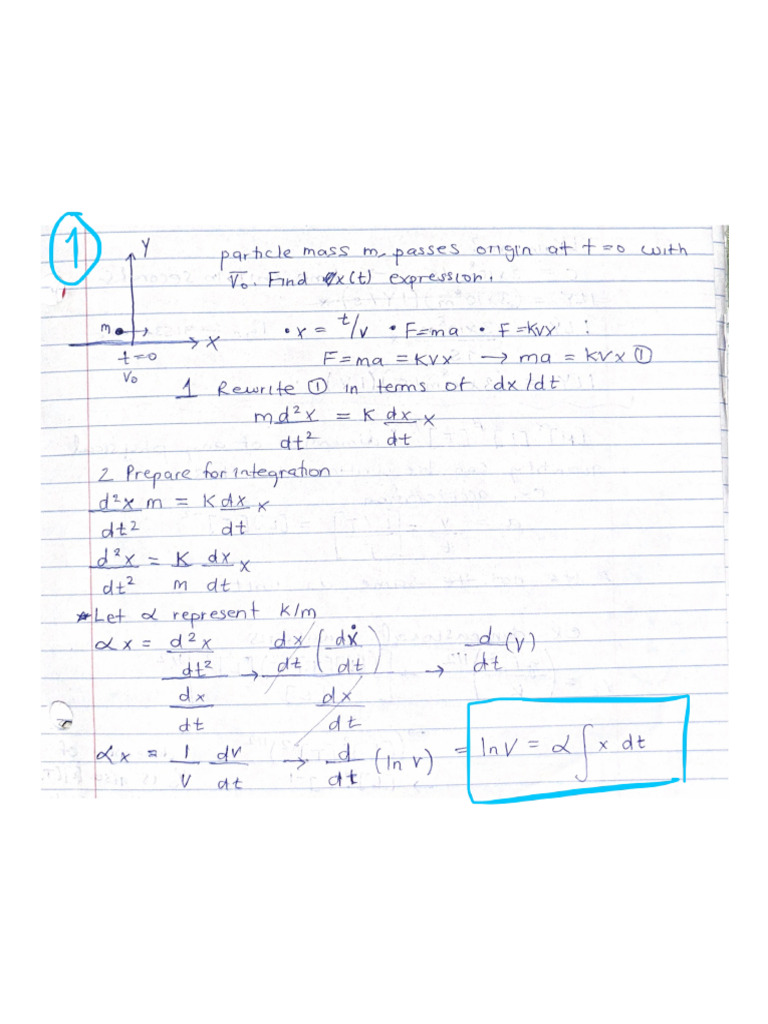 1
Y
particle mass m, passes origin at t=0 with
V̅₀. Find x(t) expression.
m
X
• x = t/v • F=ma • F=kvx :
t=0
F=ma = kvx → ma = kvx ①
V₀
1 Rewrite ① in terms of dx/dt
m d²x/dt² = K dx/dt x
2 Prepare for integration
d²x/dt² m = K dx/dt x
d²x/dt² = K/m dx/dt x
* Let α represent K/m
αx = (d²x/dt²)/(dx/dt) → dx/dt (dẋ/dt)/(dx/dt) → d/dt (V)
αx = 1/V dV/dt → d/dt (ln V) = ln V = α∫x dt